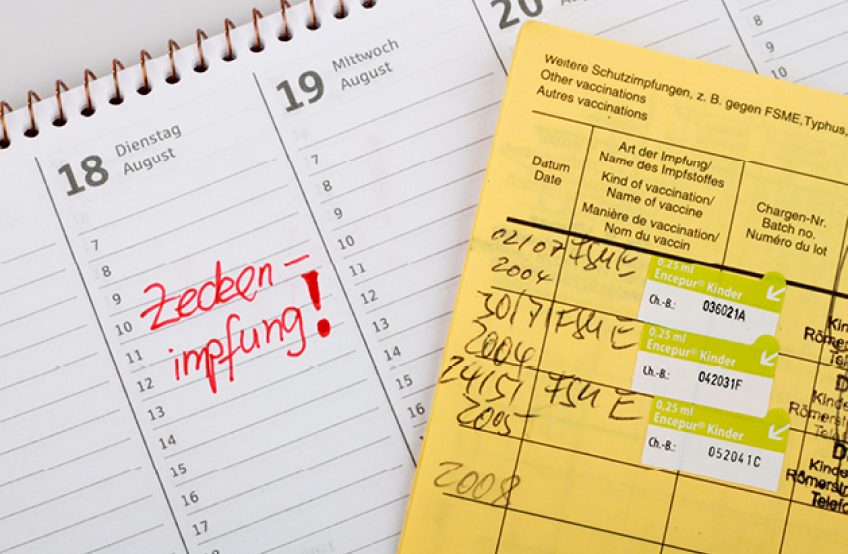 18 Dienstag
August
7
8
9
10
11
12
13
14
15
16
17
Zecken-
impfung!
19 Mittwoch
August
7
8
9
10
11
12
13
14
15
16
20
8
9
10
Weitere Schutzimpfungen, z. B. gegen FSME, Typhus,
Other vaccinations
Autres vaccinations
Datum
Date
Art der Impfung/
Name des Impfstoffes
Kind of vaccination/
Name of vaccine
Manière de vaccination/
Nom du vaccin
Chargen-Nr.
Batch no.
Numéro du lot
02/07 FSME
2004
0,25 ml
Encepur® Kinder
Ch.-B.: 036021A
30/7 FSME
2004
0,25 ml
Encepur® Kinder
Ch.-B.: 042031F
24/5/ FSME
2005
0,25 ml
Encepur® Kinder
Ch.-B.: 052041C
2008
Kinde
Römerstr
Telefo